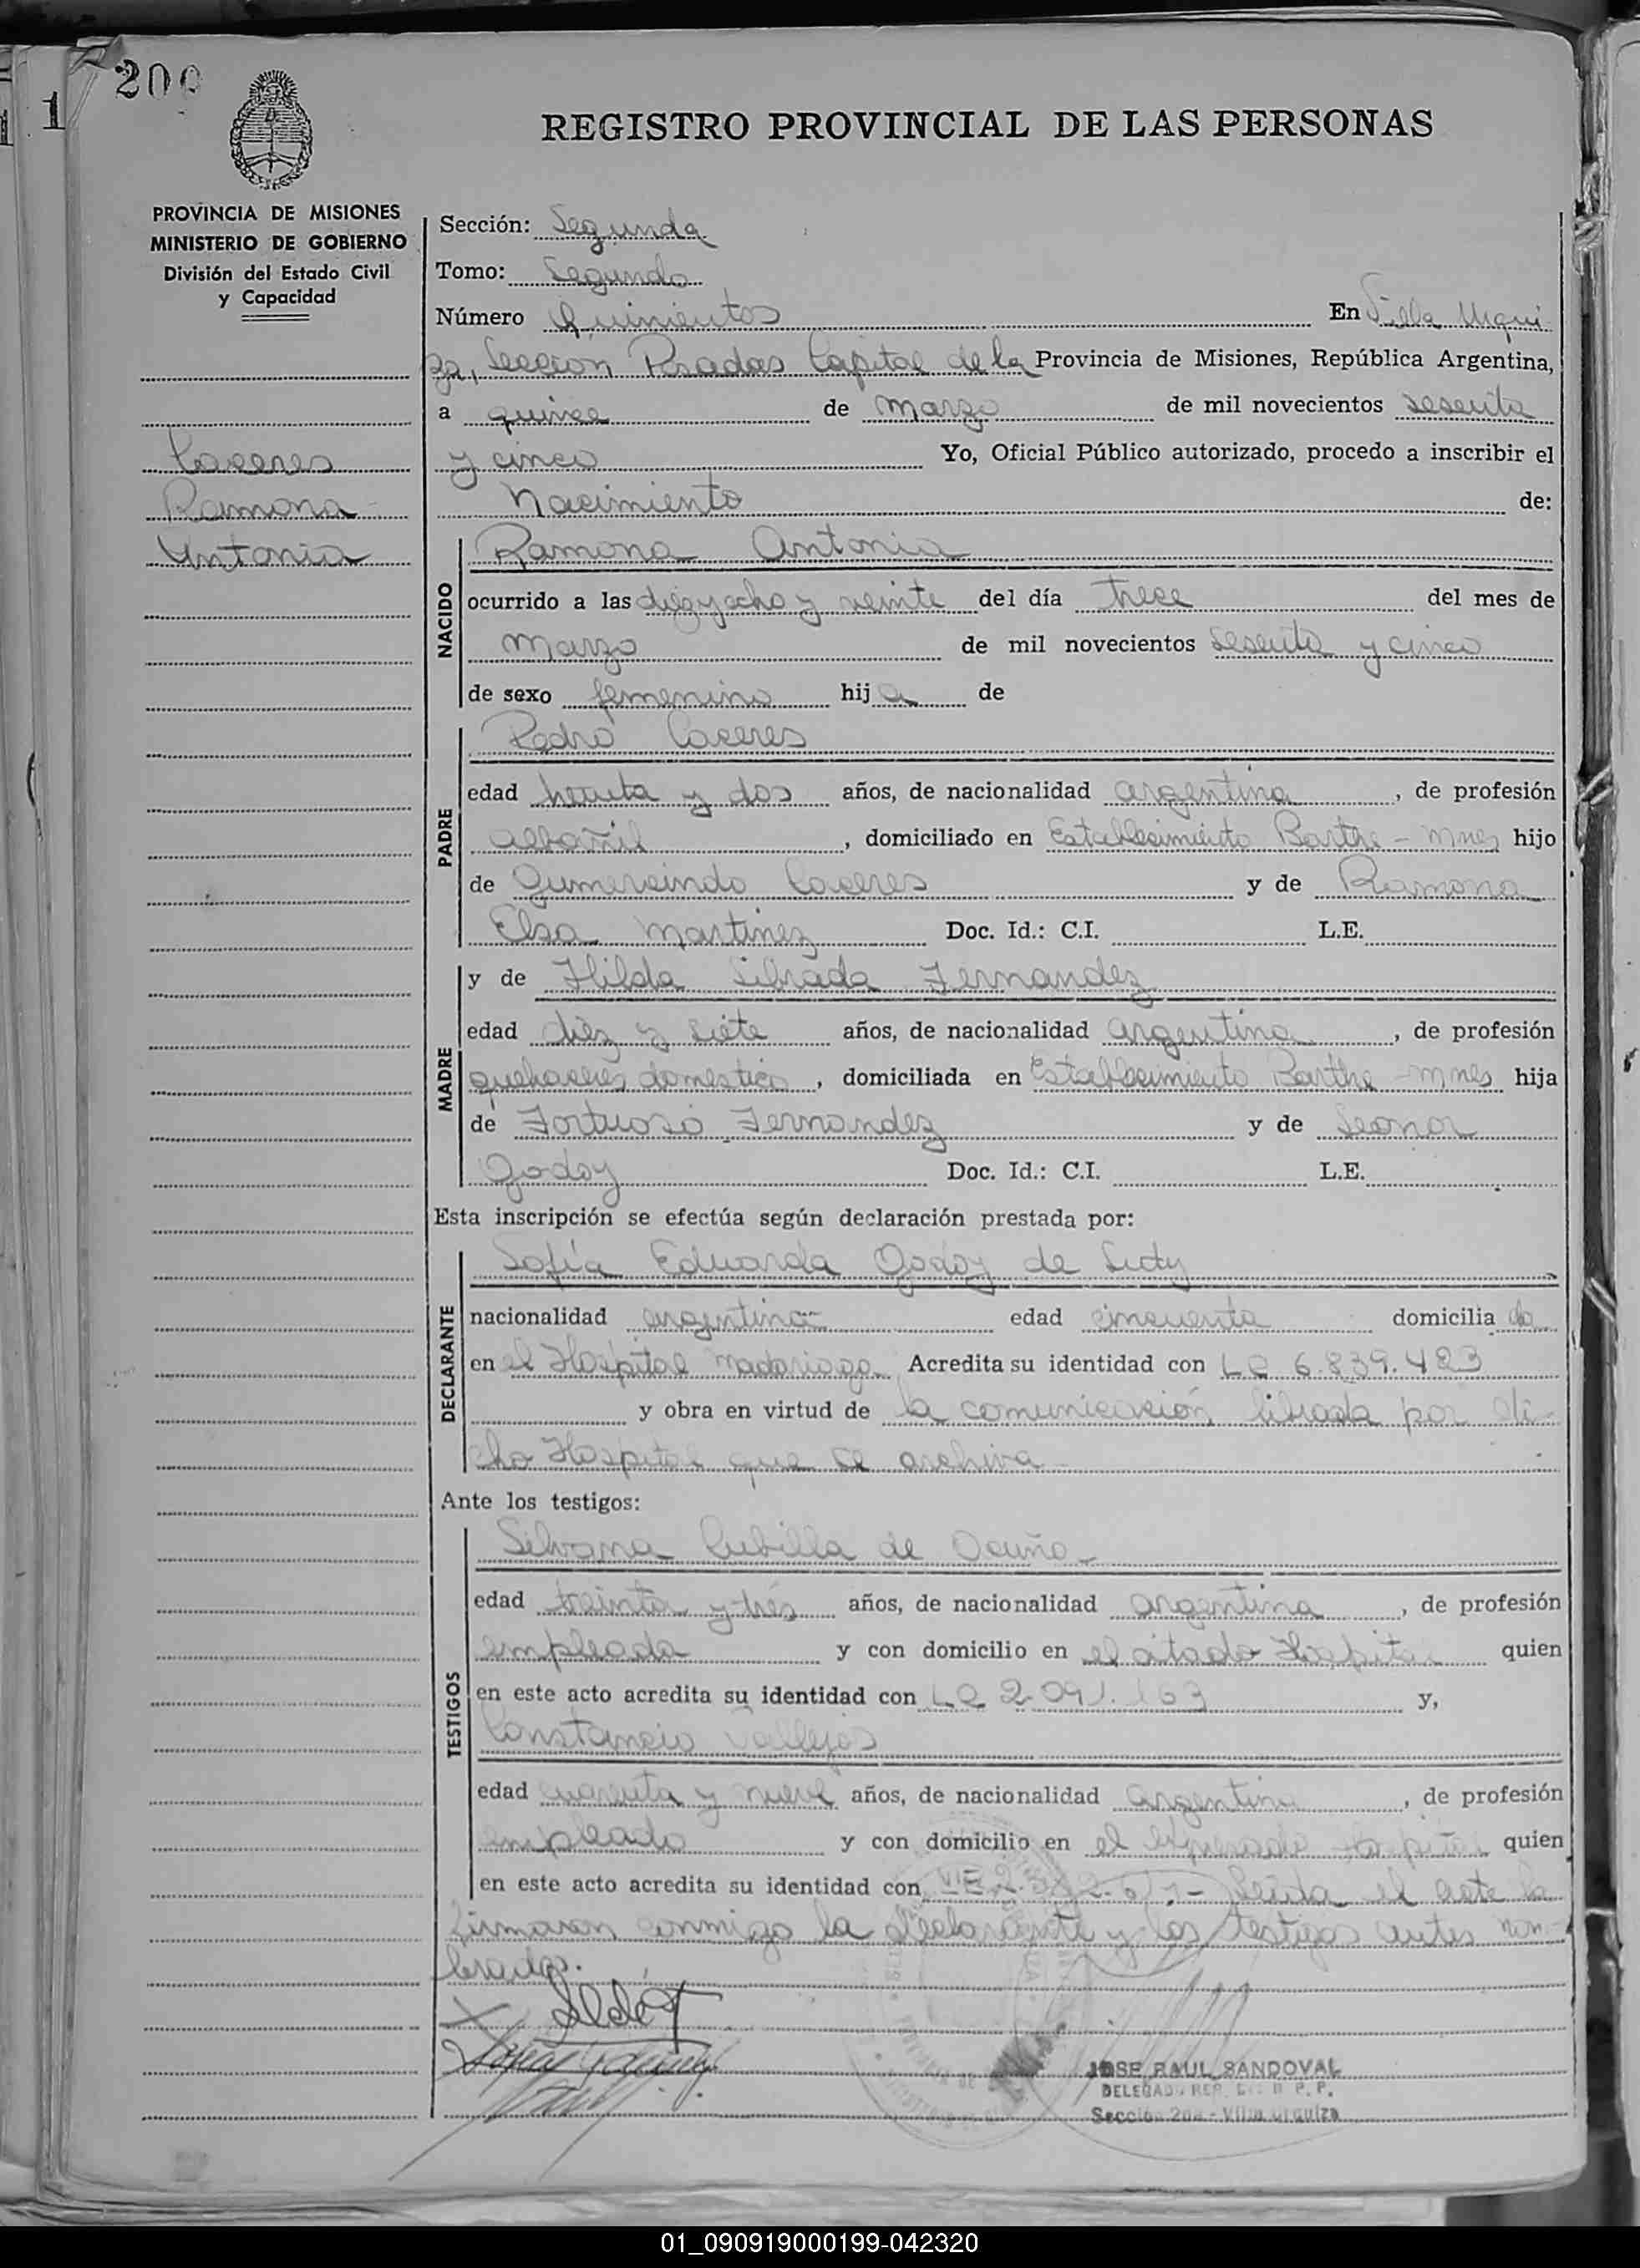 200
1
REGISTRO PROVINCIAL DE LAS PERSONAS
PROVINCIA DE MISIONES
MINISTERIO DE GOBIERNO
División del Estado Civil
y Capacidad
Caceres
Ramona
Antonia
Sección: Segunda
Tomo: Segundo
Número Quinientos En Villa Urqui
za, Sección Posadas Capital de la Provincia de Misiones, República Argentina,
a quince de marzo de mil novecientos sesenta
y cinco Yo, Oficial Público autorizado, procedo a inscribir el
Nacimiento de:
NACIDO
Ramona Antonia
ocurrido a las diez y ocho y veinte del día trece del mes de
marzo de mil novecientos sesenta y cinco
de sexo femenino hija de
PADRE
Pedro Caceres
edad treinta y dos años, de nacionalidad argentina, de profesión
albañil, domiciliado en Establecimiento Barthe - Mnes hijo
de Gumercindo Caceres y de Ramona
Elsa Martinez Doc. Id.: C.I. L.E.
MADRE
y de Hilda Librada Fernandez
edad diez y siete años, de nacionalidad argentina, de profesión
quehaceres domestico, domiciliada en Establecimiento Barthe - Mnes hija
de Fortuoso Fernandez y de Leonor
Godoy Doc. Id.: C.I. L.E.
Esta inscripción se efectúa según declaración prestada por:
DECLARANTE
Sofía Eduarda Godoy de
nacionalidad argentina edad cincuenta domiciliada
en el Hospital Madariaga Acredita su identidad con LC 6.839.423
y obra en virtud de la comunicación librada por di-
cho Hospital que se archiva
Ante los testigos:
TESTIGOS
Silvana Cubilla de Ocuño
edad treinta y tres años, de nacionalidad argentina, de profesión
empleada y con domicilio en el citado Hospital quien
en este acto acredita su identidad con LC 2.091.163 y,
Constancio Vallejos
edad cuarenta y nueve años, de nacionalidad argentina, de profesión
empleado y con domicilio en el expresado Hospital quien
en este acto acredita su identidad con Leida el acta la
firmaron conmigo la declarante y los testigos antes nom-
brados.
JOSE RAUL SANDOVAL
Sección 2da - Villa Urquiza
01_090919000199-042320